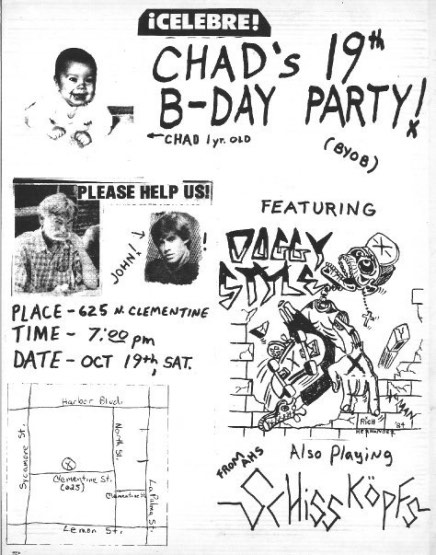 ¡CELEBRE!
CHAD's 19th
B-DAY PARTY!
←CHAD 1yr. OLD
(BYOB)
PLEASE HELP US!
JOHN!
!
FEATURING
DOGGY
STYLE
PLACE - 625 N. CLEMENTINE
TIME - 7:00 pm
DATE - OCT 19th, SAT.
Harbor Blvd.
Sycamore St.
North St.
X
Clementine St.
(625)
Clementine St.
La Palma St.
Lemon St.
X
RICH
HERNANDEZ
'84
FROM AHS
Also Playing
SCHISSKÖPFS